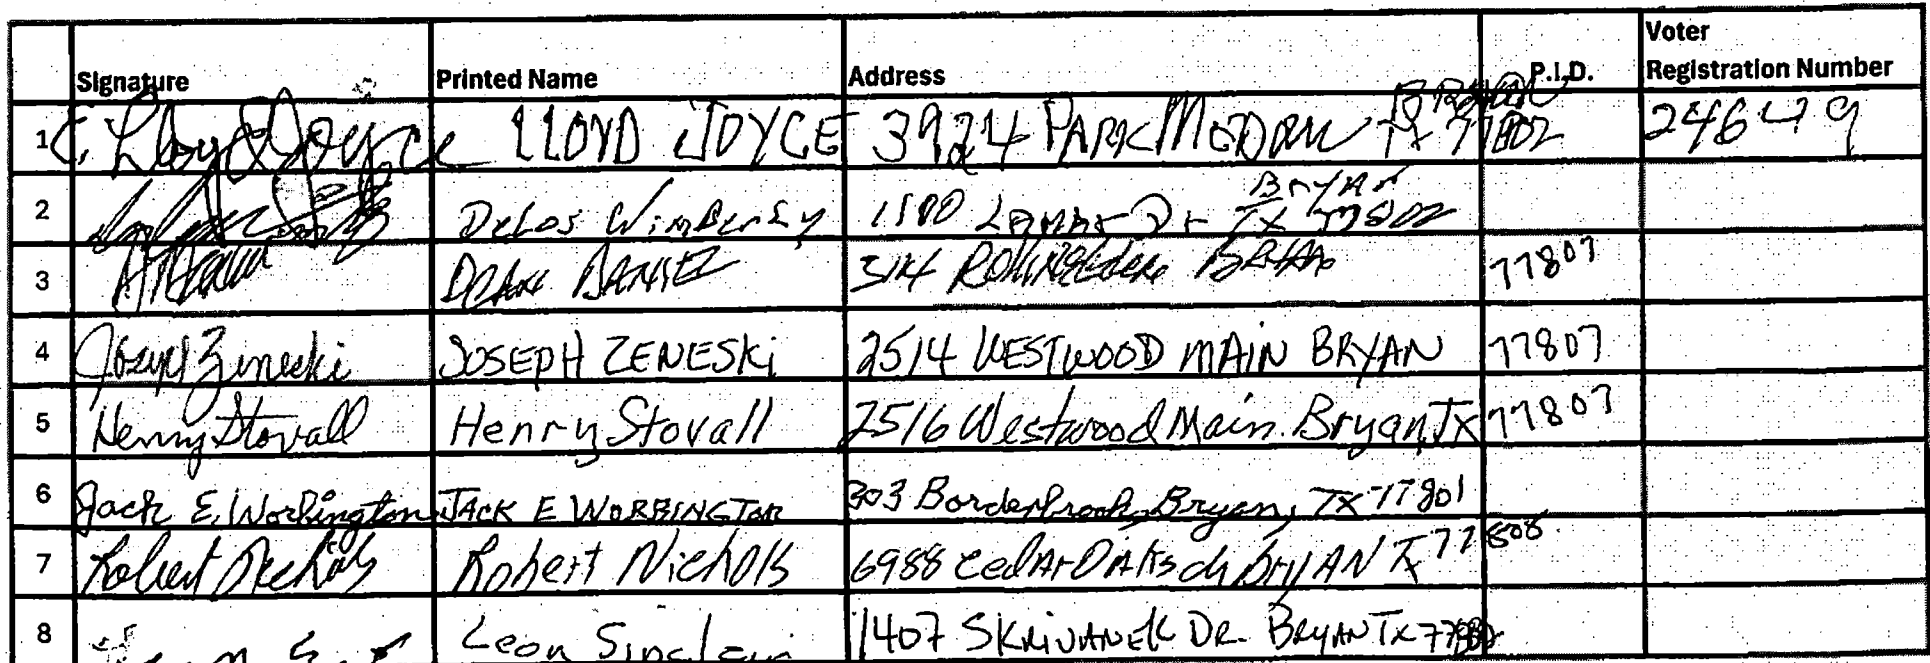 Signature Printed Name Address P.I.D. Voter Registration Number
1 C. Lloyd Joyce LLOYD JOYCE 3924 PARK MEDOW BRYAN TX 77802 24649
2 Delos Wimberly 1500 Lamar Dr BryAn TX 77802
3 314 Rolling Glen BRYAN 77807
4 Joseph Zeneski JOSEPH ZENESKi 2514 WESTWOOD MAIN BRYAN 77807
5 Henry Stovall Henry Stovall 2516 Westwood Main. Bryan, Tx 77807
6 Jack E. Worbington JACK E WORBINGTON 303 Borderbrook, Bryan, TX 77801
7 Robert Nichols Robert Nichols 6988 cedAr OAKs BryAN Tx 77808
8 Leon Sinclair 1407 SKRIVANEK DR. BRYAN TX